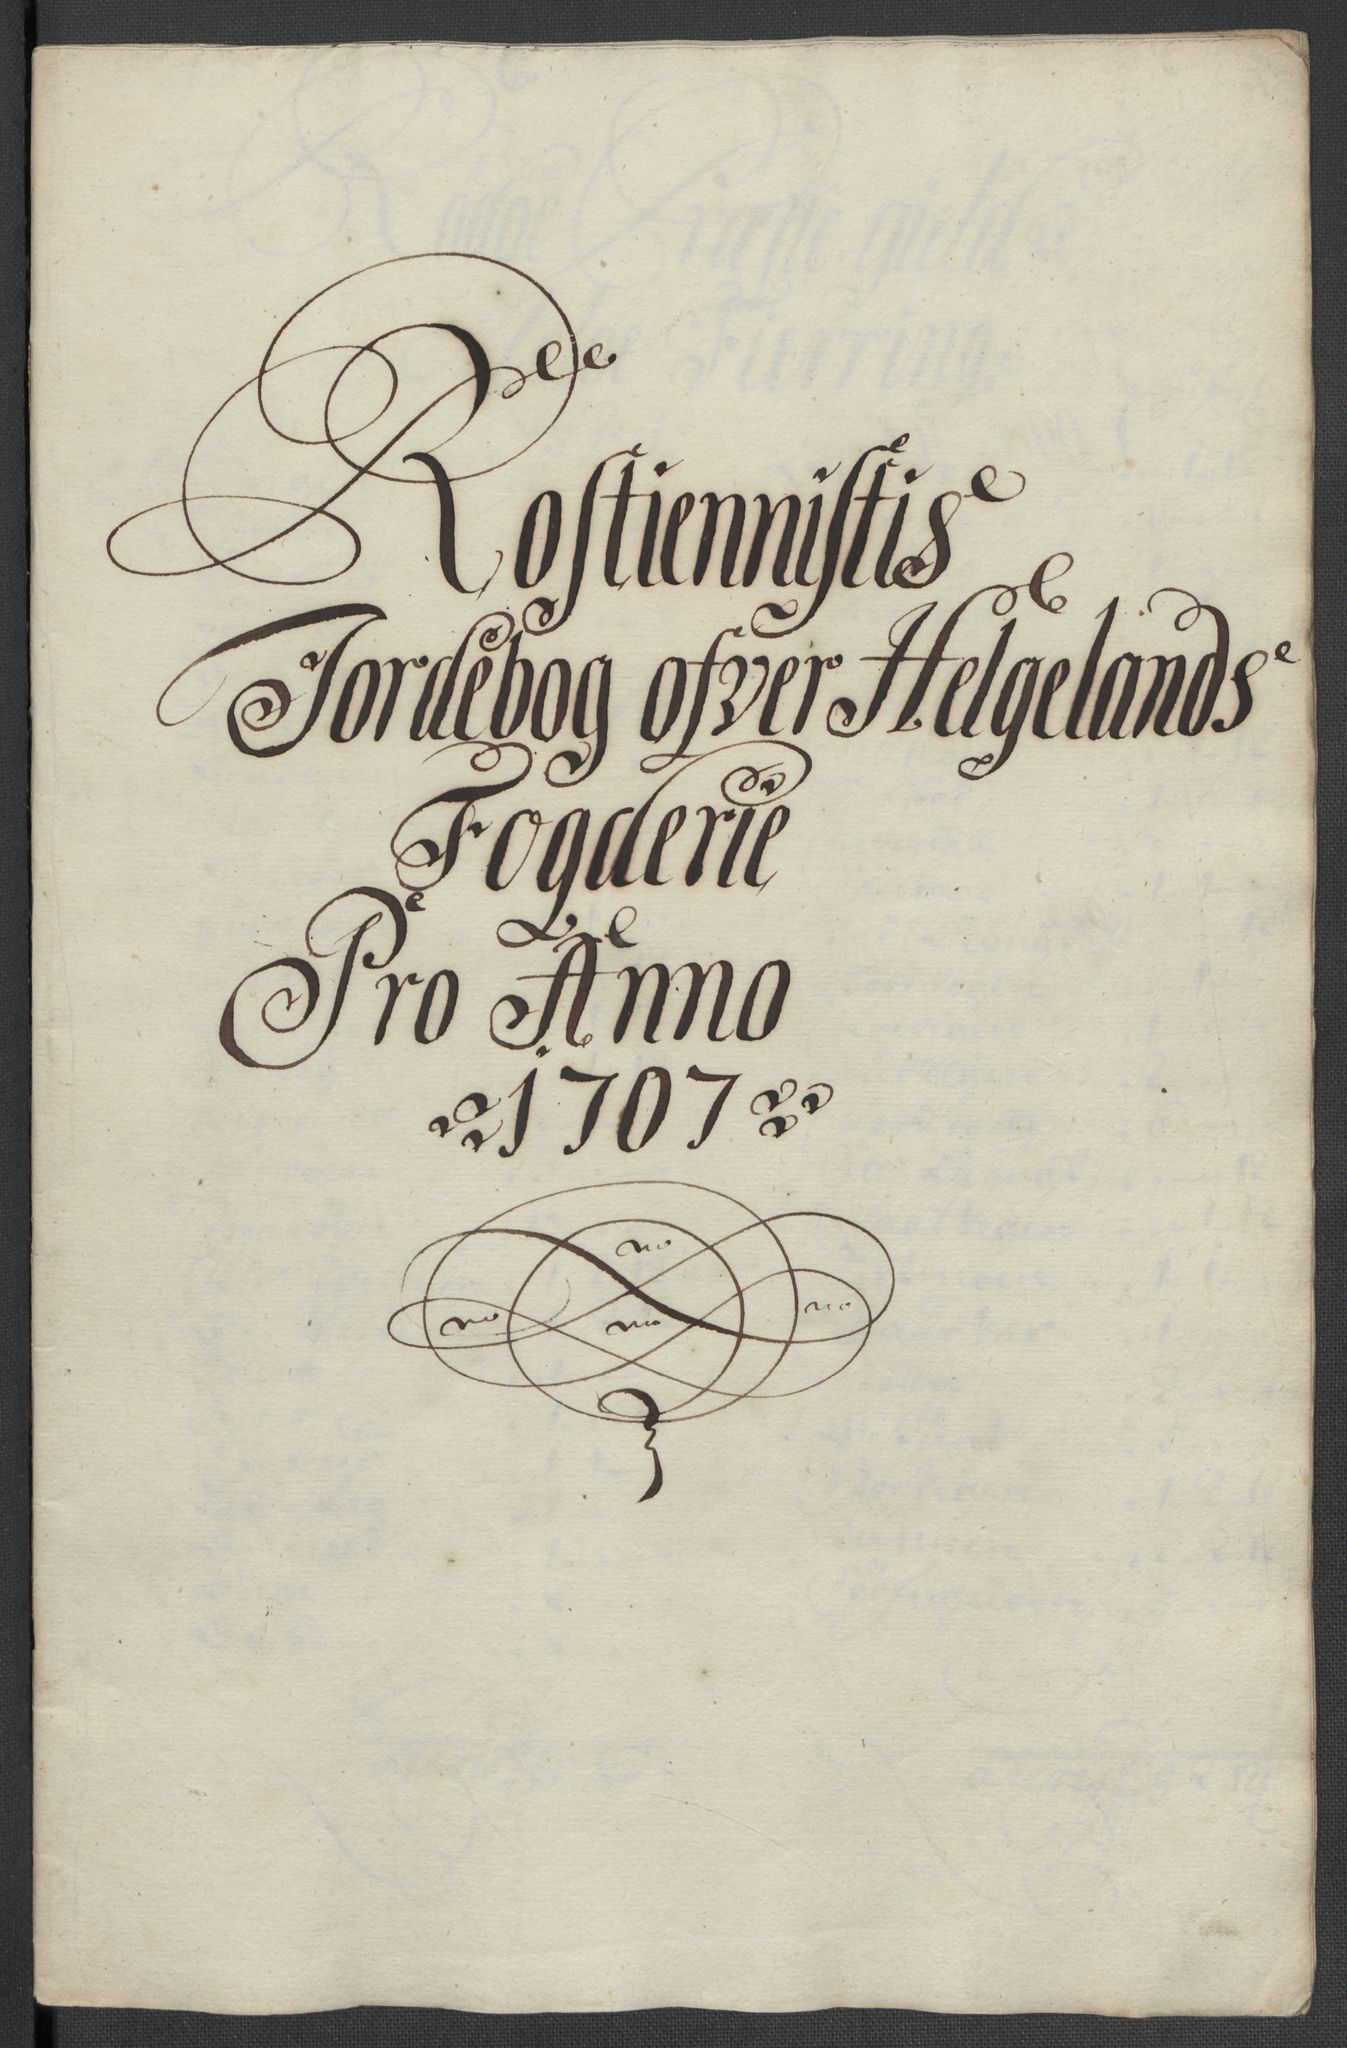 Rostiennistis
Jordebog ofver Helgelands
Fogderie
Pro Anno
1707